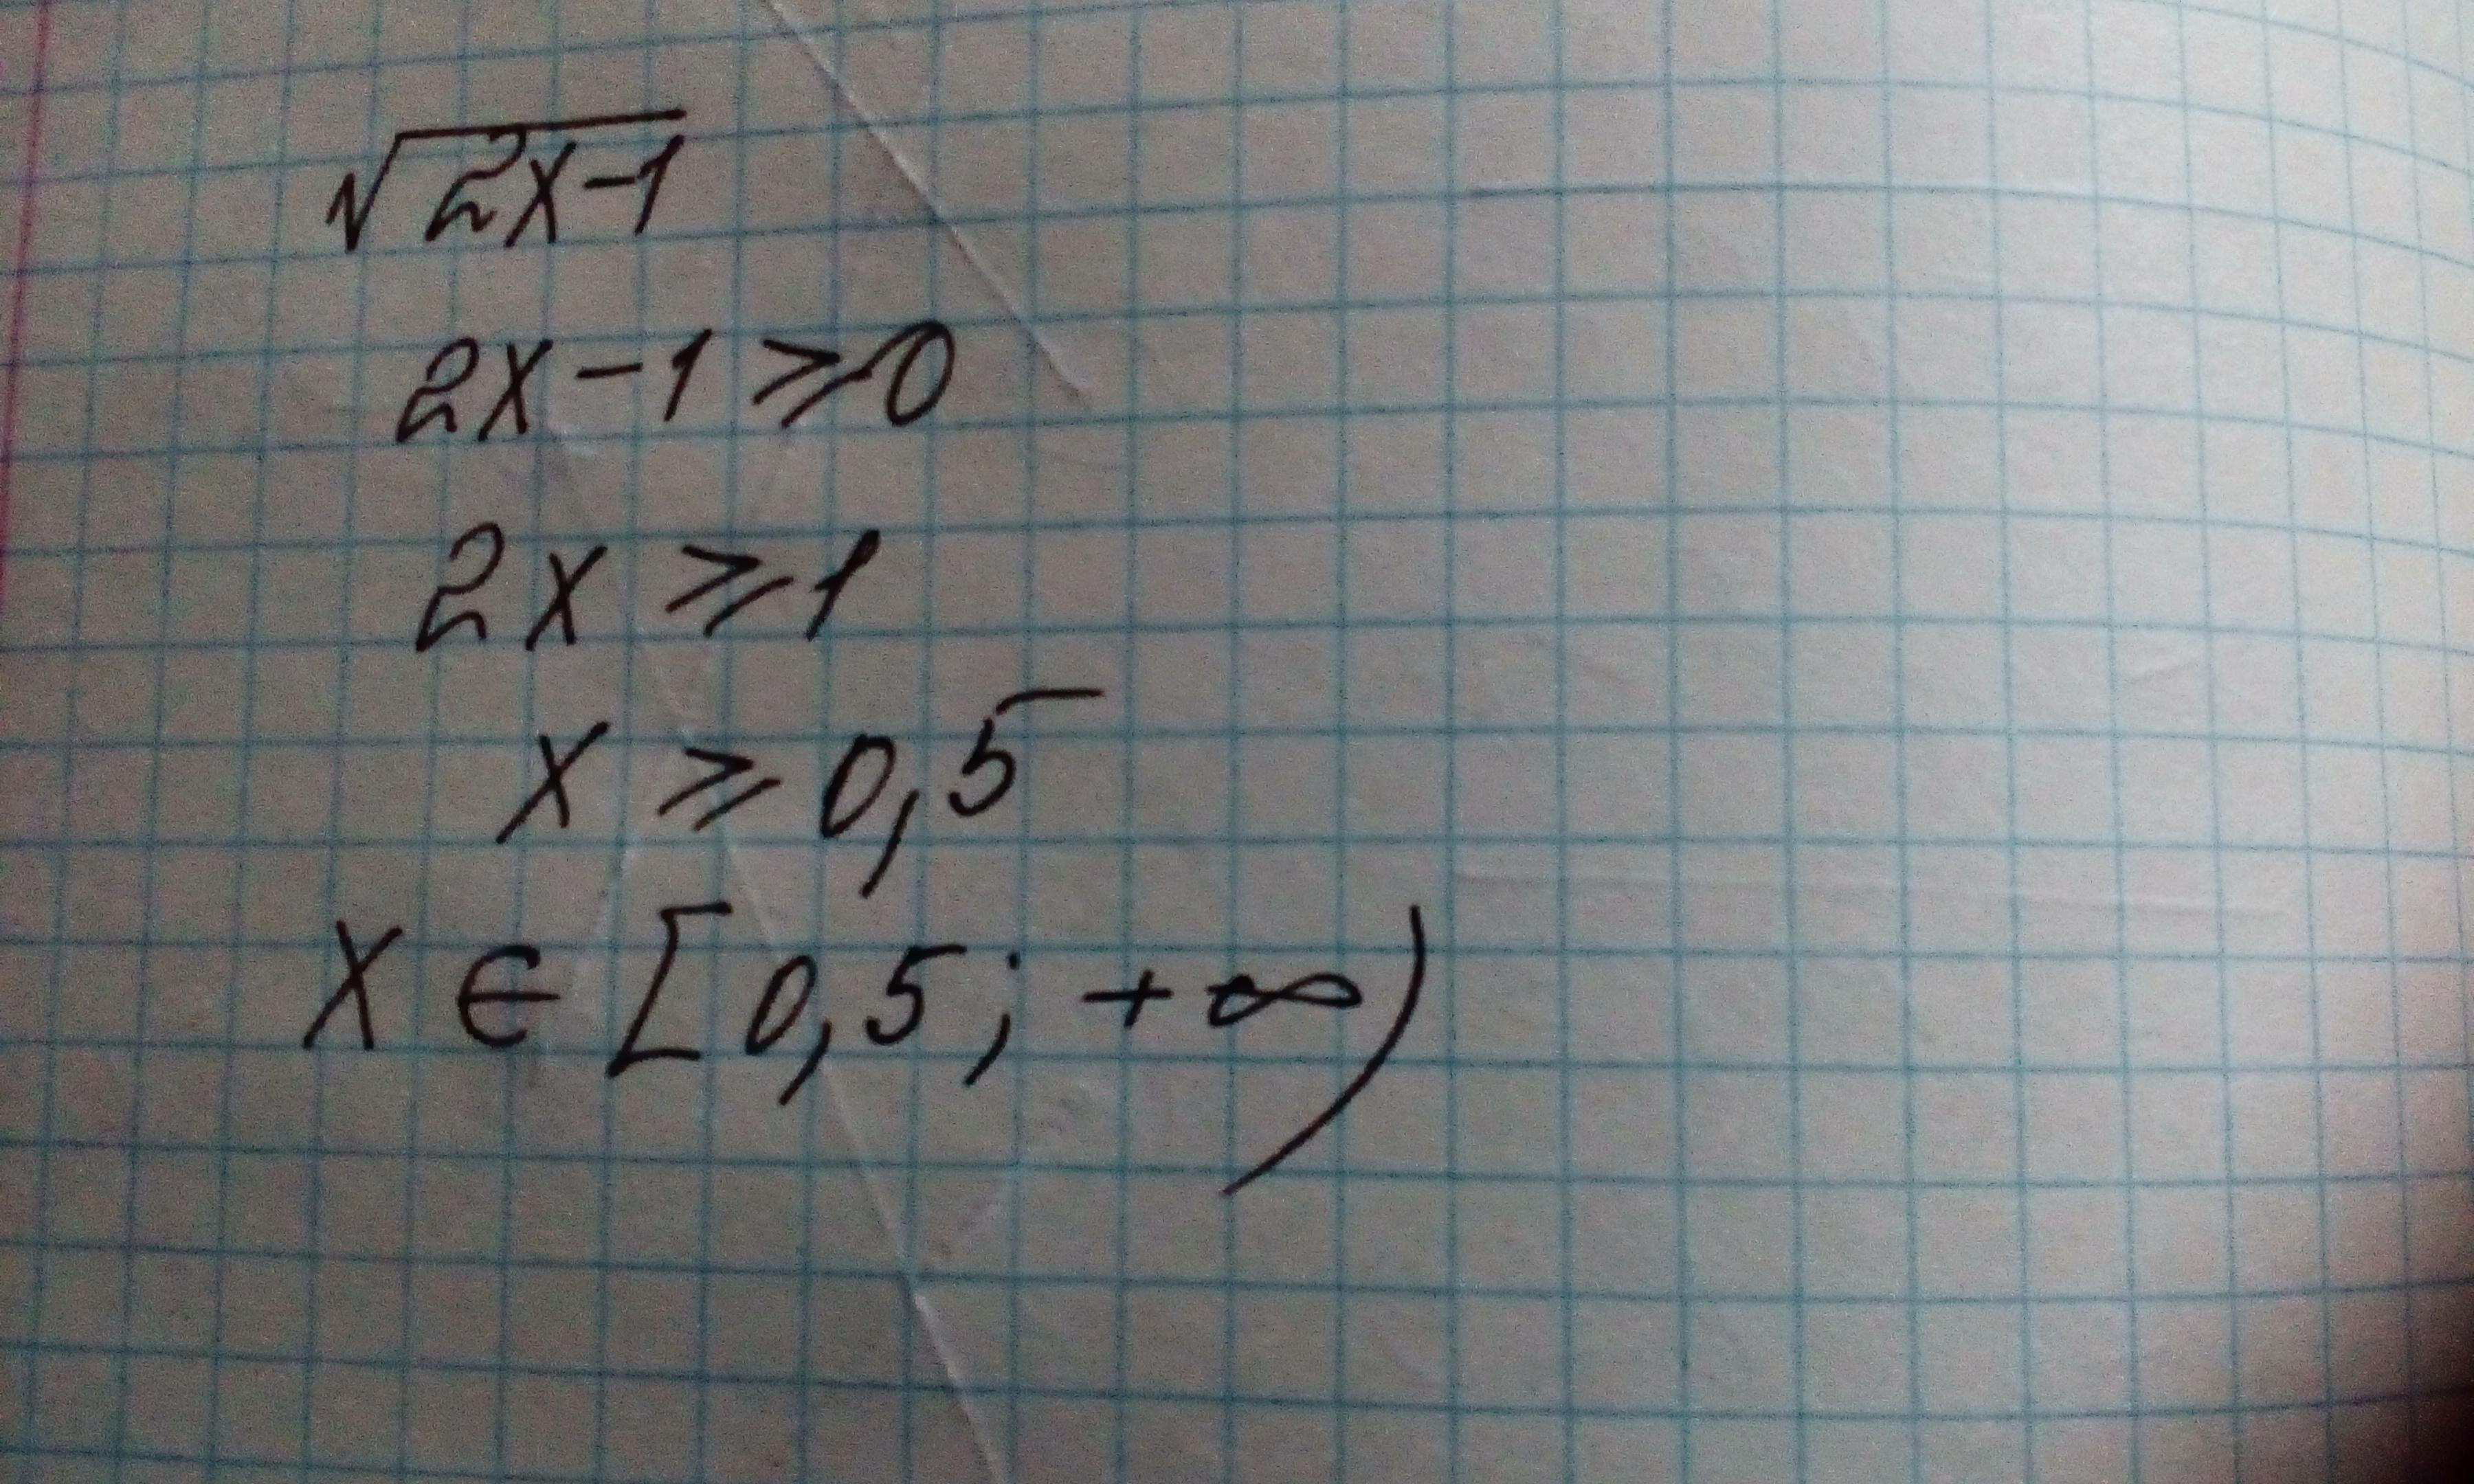 √2x-1
2x-1⩾0
2x⩾1
x⩾0,5
x∈[0,5;+∞)